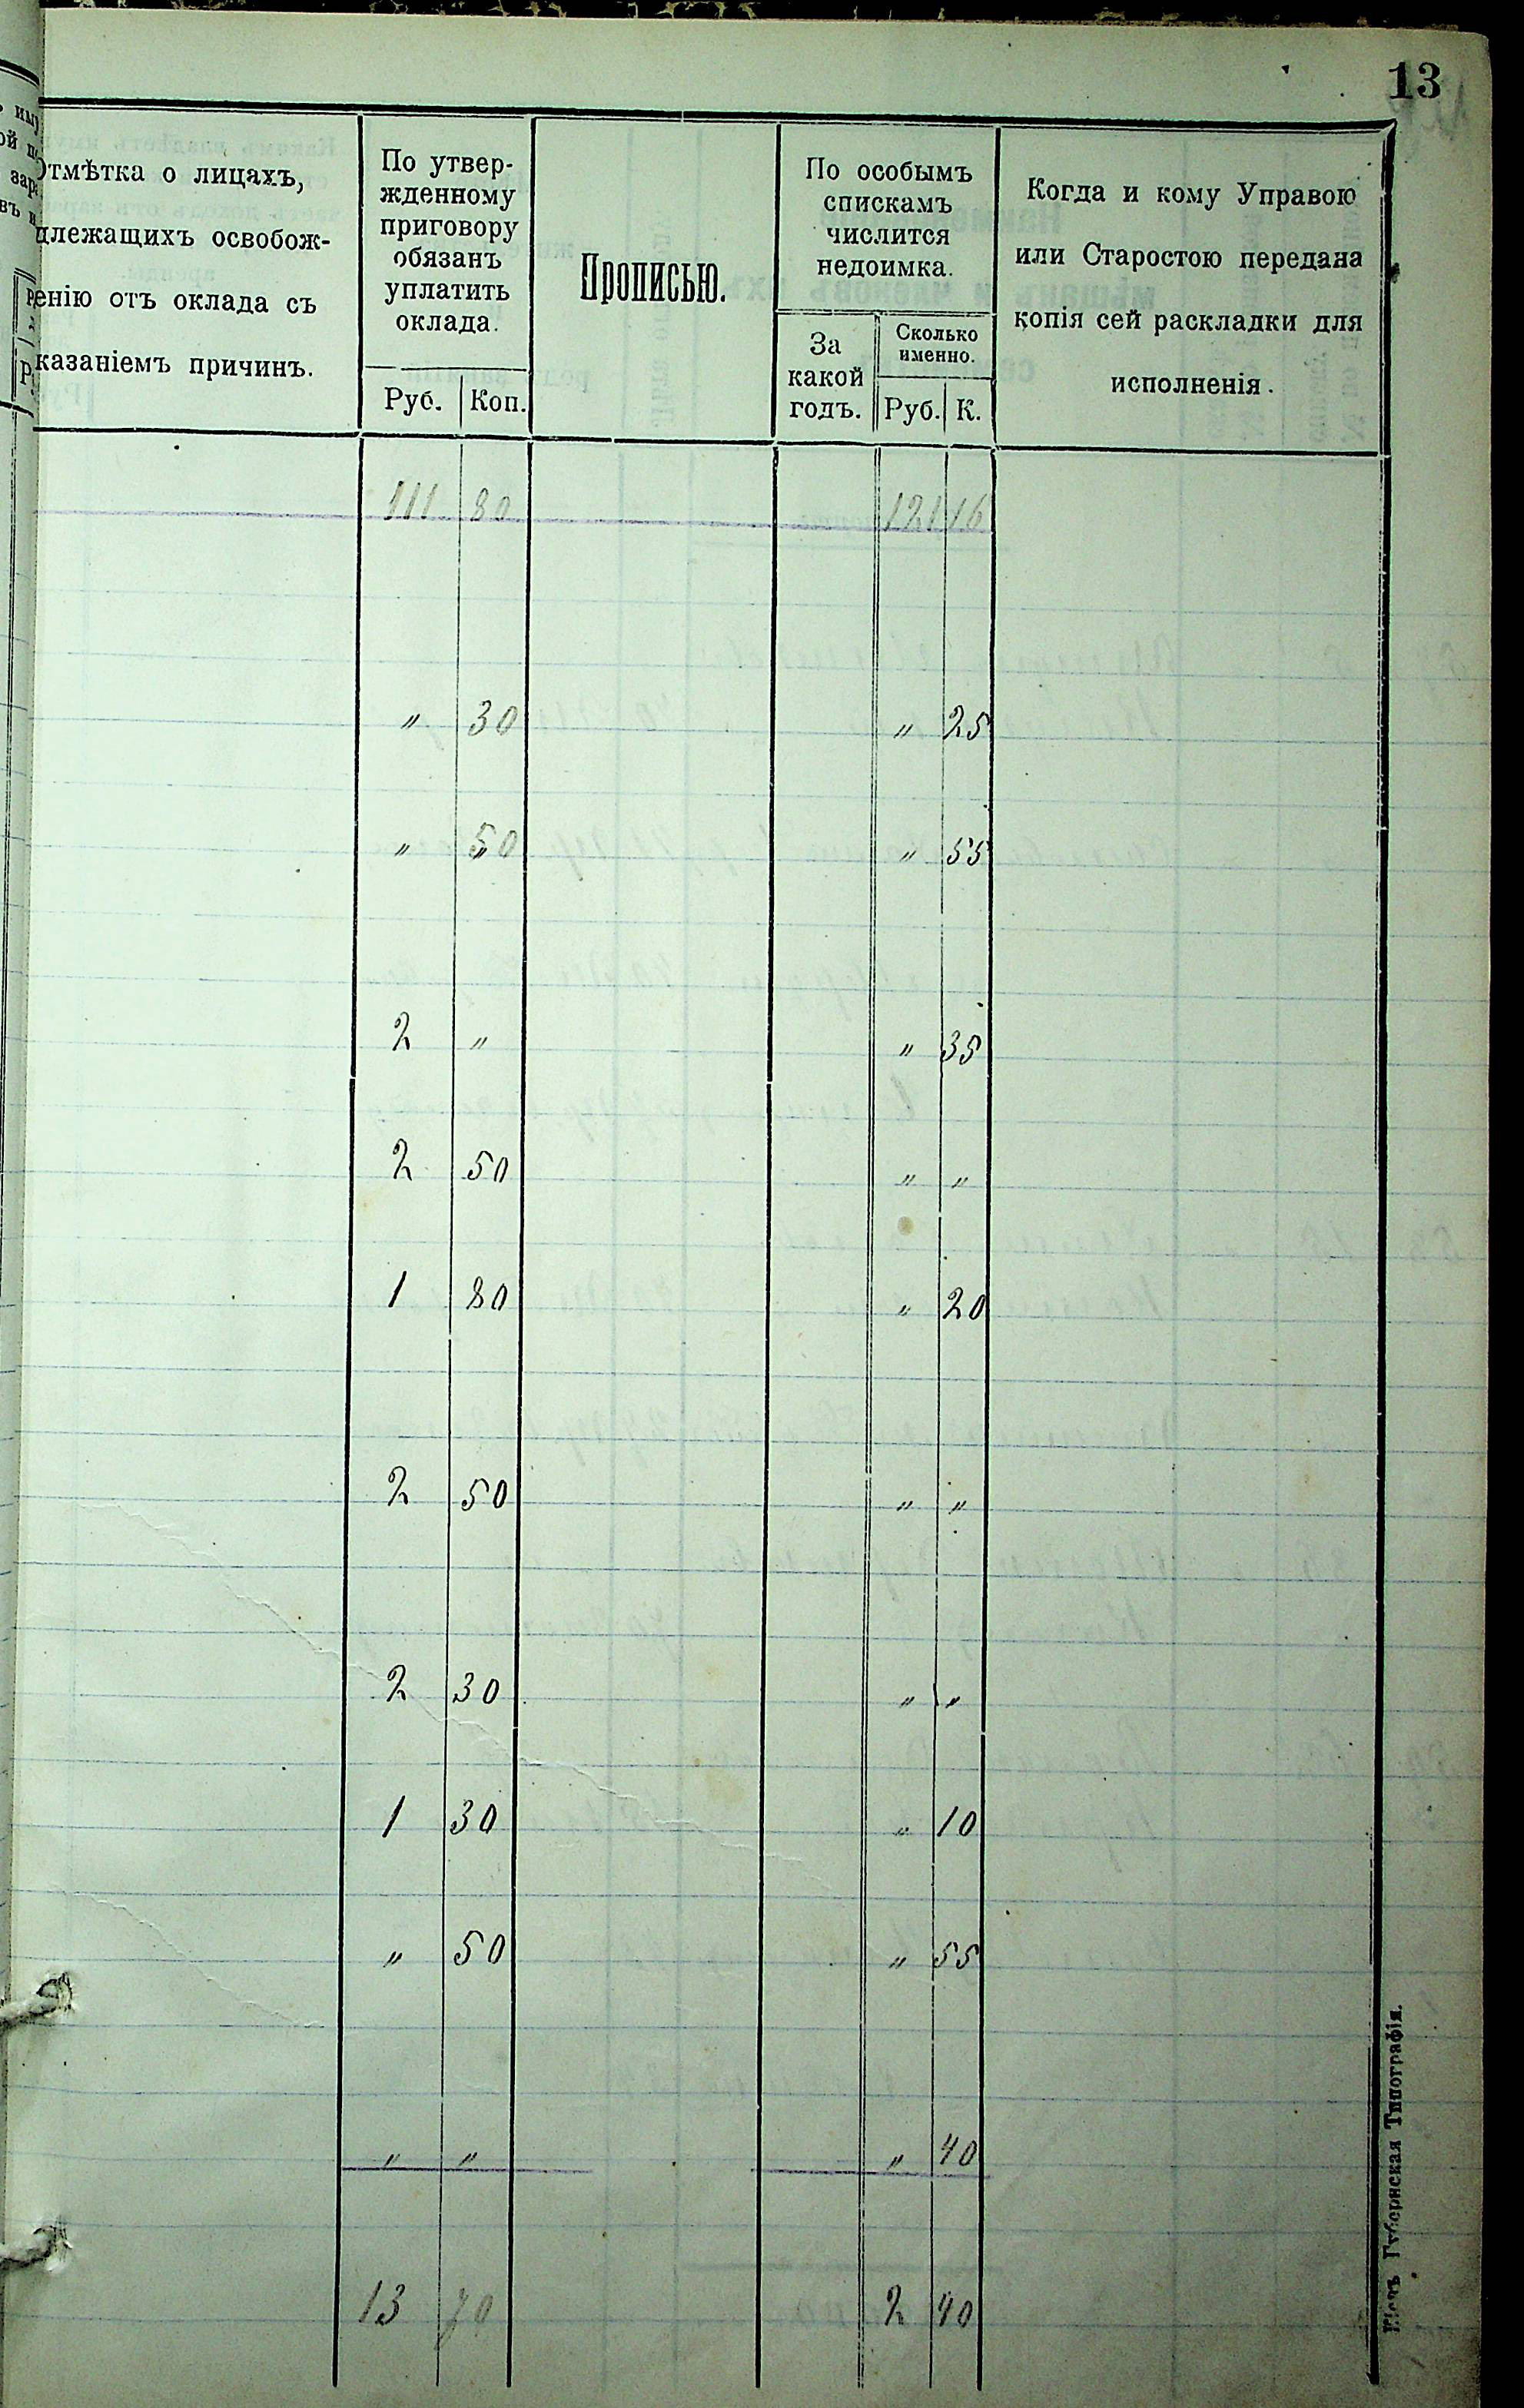 13
Отмѣтка о лицахъ,
длежащихъ освобож-
енію отъ оклада съ
казаніемъ причинъ.
По утвер-
жденному
приговору
обязанъ
уплатить
оклада.
Руб. Коп.
Прописью.
По особымъ
спискамъ
числится
недоимка.
За
какой
годъ.
Сколько
именно.
Руб. К.
Когда и кому Управою
или Старостою передана
копія сей раскладки для
исполненія.
111 80 121 16
" 30 " 25
" 50 " 55
2 " " 35
2 50 " "
1 80 " 20
2 50 " "
2 30 " "
1 30 " 10
" 50 " 55
" " " 40
13 70 2 40
Кіевъ Губернская Типографія.